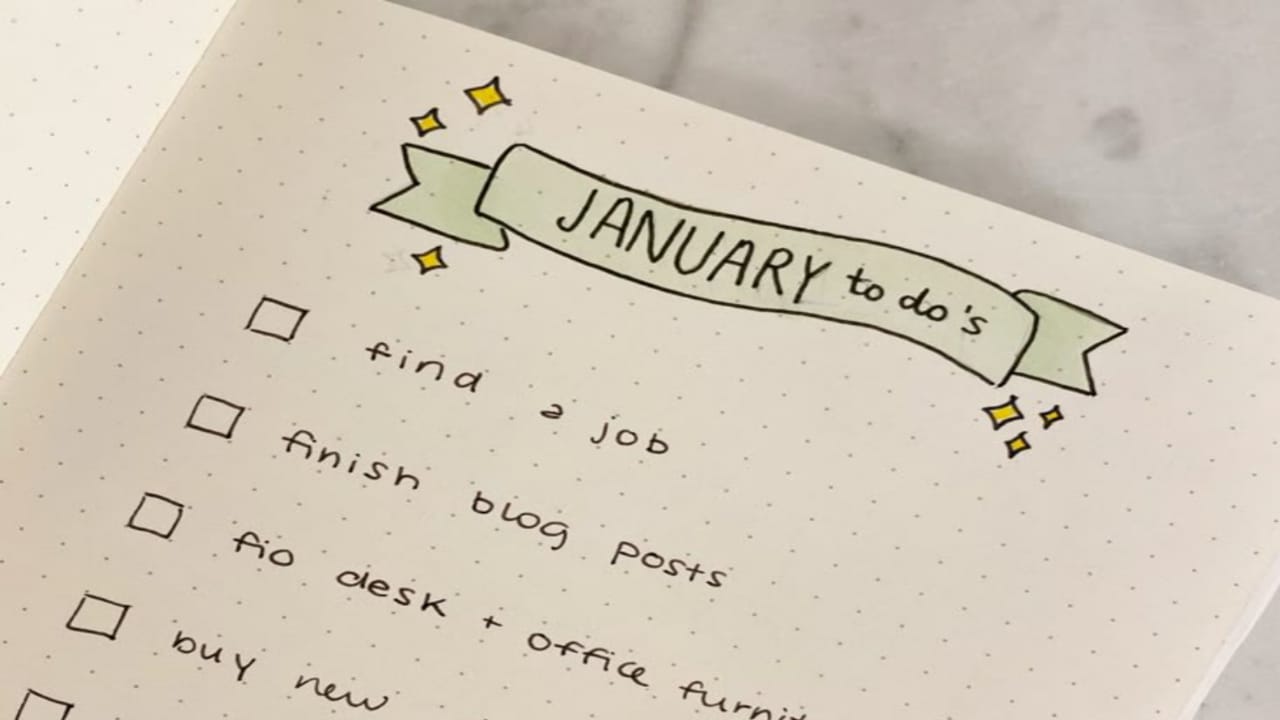 JANUARY to do's
find a job
finish blog posts
fio desk + office
buy new